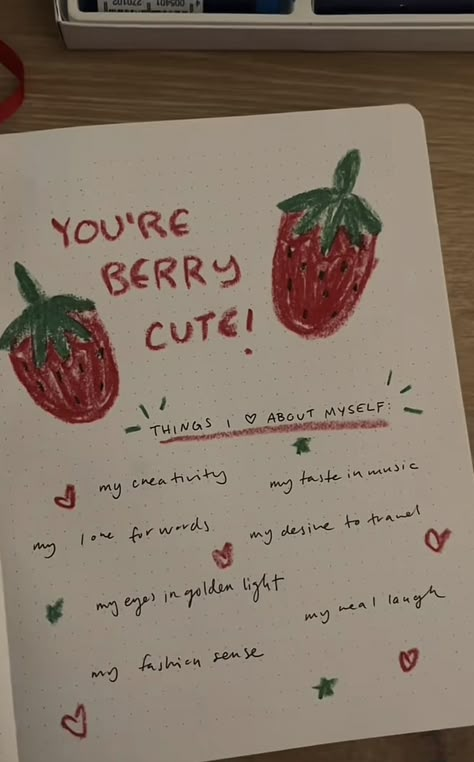 YOU'RE
BERRY
CUTE!
THINGS I ♡ ABOUT MYSELF:
my creativity
my taste in music
my love for words
my desire to travel
my eyes in golden light
my real laugh
my fashion sense